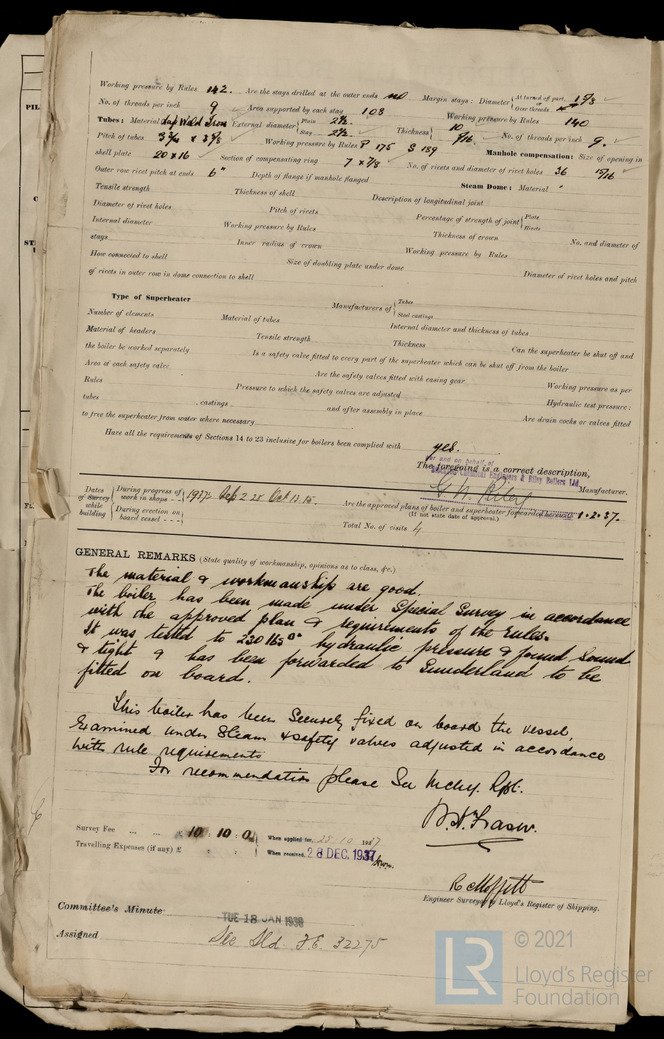 Working pressure by Rules 142. Are the stays drilled at the outer ends no Margin stays: Diameter { At turned off part, 1 5/8 Over threads
No. of threads per inch 9 Area supported by each stay 108 Working pressure by Rules 140
Tubes: Material Lap Weld Iron External diameter { Plain 2 1/2 Stay 2 1/2 Thickness { 10 5/16 No. of threads per inch 9.
Pitch of tubes 3 3/4 x 3 7/8 Working pressure by Rules P 175 S 189 Manhole compensation: Size of opening in
shell plate 20 x 16 Section of compensating ring 7 x 7/8 No. of rivets and diameter of rivet holes 36 15/16
Outer row rivet pitch at ends 6" Depth of flange if manhole flanged Steam Dome: Material
Tensile strength Thickness of shell Description of longitudinal joint
Diameter of rivet holes Pitch of rivets Percentage of strength of joint { Plate Rivets
Internal diameter Working pressure by Rules Thickness of crown No. and diameter of
stays Inner radius of crown Working pressure by Rules
How connected to shell Size of doubling plate under dome Diameter of rivet holes and pitch
of rivets in outer row in dome connection to shell
Type of Superheater Manufacturers of { Tubes Steel castings
Number of elements Material of tubes Internal diameter and thickness of tubes
Material of headers Tensile strength Thickness Can the superheater be shut off and
the boiler be worked separately Is a safety valve fitted to every part of the superheater which can be shut off from the boiler
Area of each safety valve Are the safety valves fitted with easing gear Working pressure as per
Rules Pressure to which the safety valves are adjusted Hydraulic test pressure:
tubes , castings and after assembly in place Are drain cocks or valves fitted
to free the superheater from water where necessary
Have all the requirements of Sections 14 to 23 inclusive for boilers been complied with yes.
For and on behalf of
The foregoing is a correct description,
Chemical Engineers & Riley Boilers Ltd.
Manufacturer.
Dates of Survey while building { During progress of work in shops - - 1937: Sep 2 28 Oct 13 15 Are the approved plans of boiler and superheater forwarded herewith 1.2.37.
(If not state date of approval.)
During erection on board vessel - - - Total No. of visits 4
GENERAL REMARKS (State quality of workmanship, opinions as to class, &c.)
The material & workmanship are good.
The boiler has been made under Special Survey in accordance
with the approved plan & requirements of the rules.
It was tested to 230 lbs □" hydraulic pressure & found sound
& tight & has been forwarded to Sunderland to be
fitted on board.
This boiler has been securely fixed on board the vessel,
examined under steam & safety valves adjusted in accordance
with rule requirements
For recommendation please see Mchy. Rpt.
Survey Fee ... ... £ 10 : 10 : 0 When applied for, 25 10 1937
Travelling Expenses (if any) £ : : When received, 28 DEC. 1937
R C Moffitt
Engineer Surveyor to Lloyd's Register of Shipping.
Committee's Minute TUE 18 JAN 1938
Assigned See Sld. F.E. 32275
LR © 2021
Lloyd's Register
Foundation